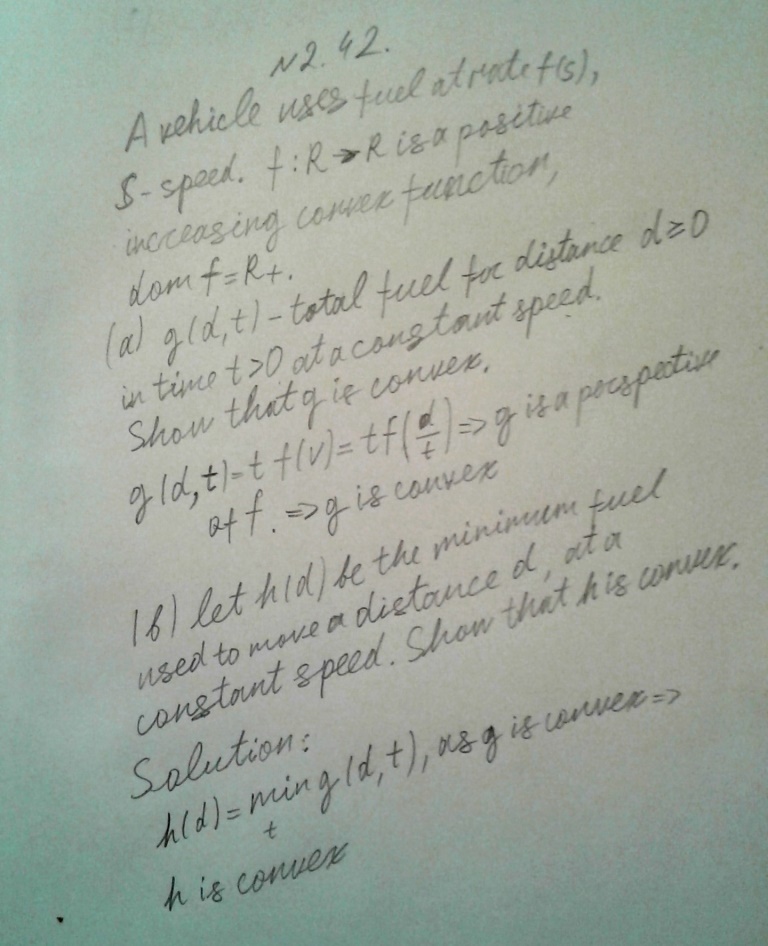 N2.42.
A vehicle uses fuel at rate f(s),
s - speed. f: R → R is a positive
increasing convex function,
dom f = R+.
(a) g(d, t) - total fuel for distance d ≥ 0
in time t > 0 at a constant speed.
Show that g is convex.
g(d, t) = t f(v) = t f(d/t) => g is a perspective
of f. => g is convex
(b) let h(d) be the minimum fuel
used to move a distance d, at a
constant speed. Show that h is convex.
Solution:
h(d) = min g(d, t), as g is convex =>
t
h is convex